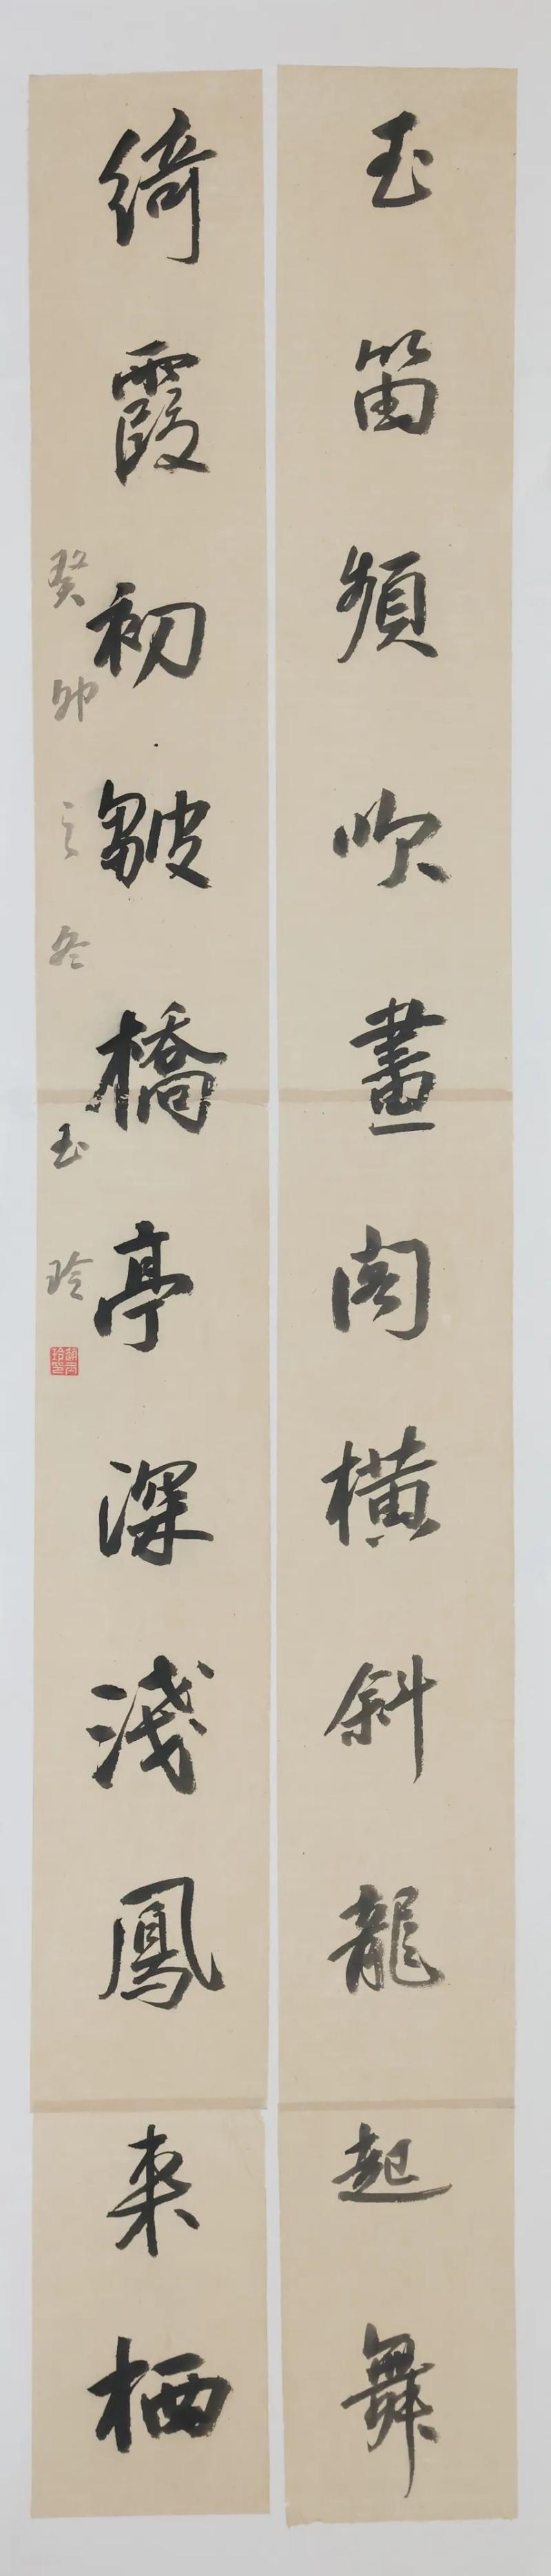 玉笛頻吹畫閣橫斜龍起舞
綺霞初皺橋亭深淺鳳來栖
癸卯之冬玉玲